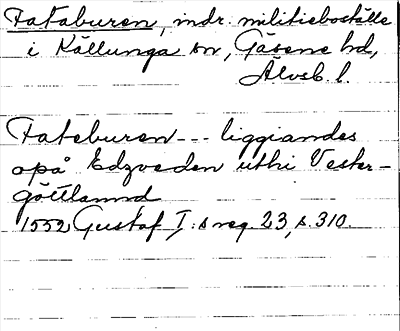 Fataburen, indr. militieboställe
i Källunga sn, Gäsene hd,
Älvsb. l.
Fateburen --- liggiandes
opå Edzveden uthi Vester-
göttlannd
1552 Gustaf I:s reg. 23, s. 310.